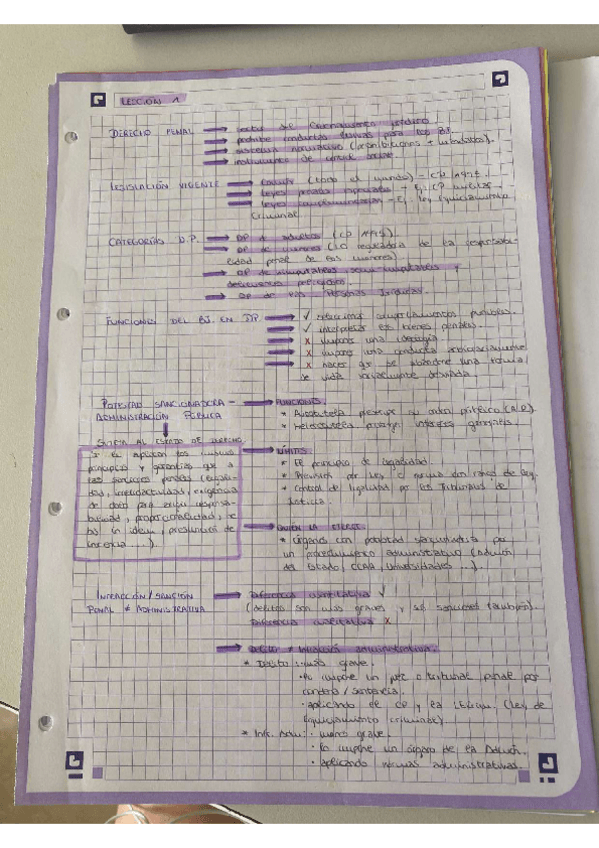 LECCION 1
DERECHO PENAL → sector del Ordenamiento jurídico
→ prohíbe conductas lesivas para los BJ.
→ sistema normativo (prohibiciones +
→ instrumento de control social
LEGISLACIÓN VIGENTE → común (todo el mundo) - CP 1995.
→ leyes penales especiales - Ej. CP militar.
→ leyes complementarias - Ej. Ley Enjuiciamiento
Criminal
CATEGORÍAS D.P. → DP de adultos (CP 1995).
→ DP de menores (LO reguladora de la responsabi-
lidad penal de los menores).
→ DP de inimputables semi imputables y
delincuentes peligrosos.
→ DP de las Personas Jurídicas.
FUNCIONES DEL BJ. EN DP. → ✓ seleccionar comportamientos punibles.
→ ✓ interpretar los tipos penales.
→ x imponer una ideología
→ x imponer una conducta
→ x hacer q se abandone una forma
de vida socialmente
POTESTAD SANCIONADORA - → FUNCIONES.
ADMINISTRACIÓN PÚBLICA * Autotutela protege su orden público
* Heterotutela protege intereses generales.
SUJETA AL ESTADO DE DERECHO
→ LÍMITES.
y se aplican los mismos
principios y garantías que a * El principio de legalidad.
las sanciones penales (legali- * Previsión por Ley o norma con rango de ley.
dad, irretroactividad, exigencia * Control de legalidad por los Tribunales de
de dolo para exigir respons- Justicia.
abilidad, proporcionalidad, ne
bis in idem, presunción de → QUIÉN LA EJERCE.
inocencia ...). * Órganos con potestad sancionadora por
un procedimiento administrativo (Admón
del Estado, CCAA, Universidades ...).
INFRACCIÓN / SANCIÓN → Diferencia cuantitativa ✓
PENAL ≠ ADMINISTRATIVA (delitos son más graves y sus sanciones también).
Diferencia cualitativa x
→ Delito ≠ infracción administrativa.
* Delito: · más grave.
· lo impone un juez o tribunal penal por
condena / sentencia.
· aplicando el CP y la LECrim. (Ley de
Enjuiciamiento criminal)
* Infr. Adm: · menos grave.
· lo impone un órgano de la Admón.
· aplicando normas administrativas.